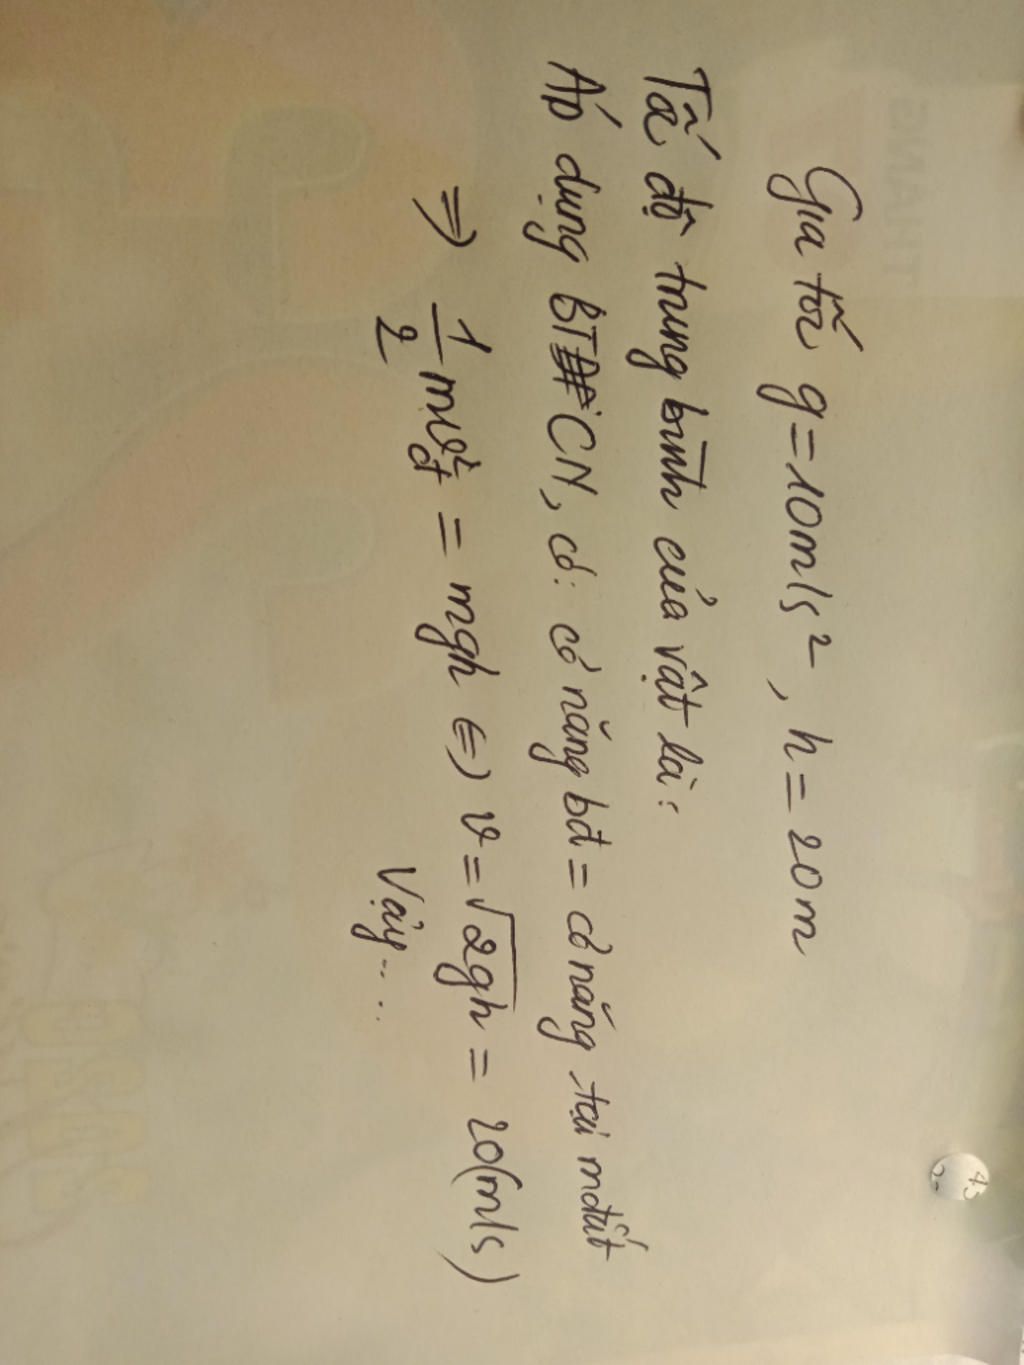 Gia tốc g = 10m/s², h = 20m
Tốc độ trung bình của vật là:
Áp dụng BTCN, có: cơ năng bđ = cơ năng tại mđất
=> 1/2 mvđ² = mgh <=> v = √2gh = 20(m/s)
Vậy....